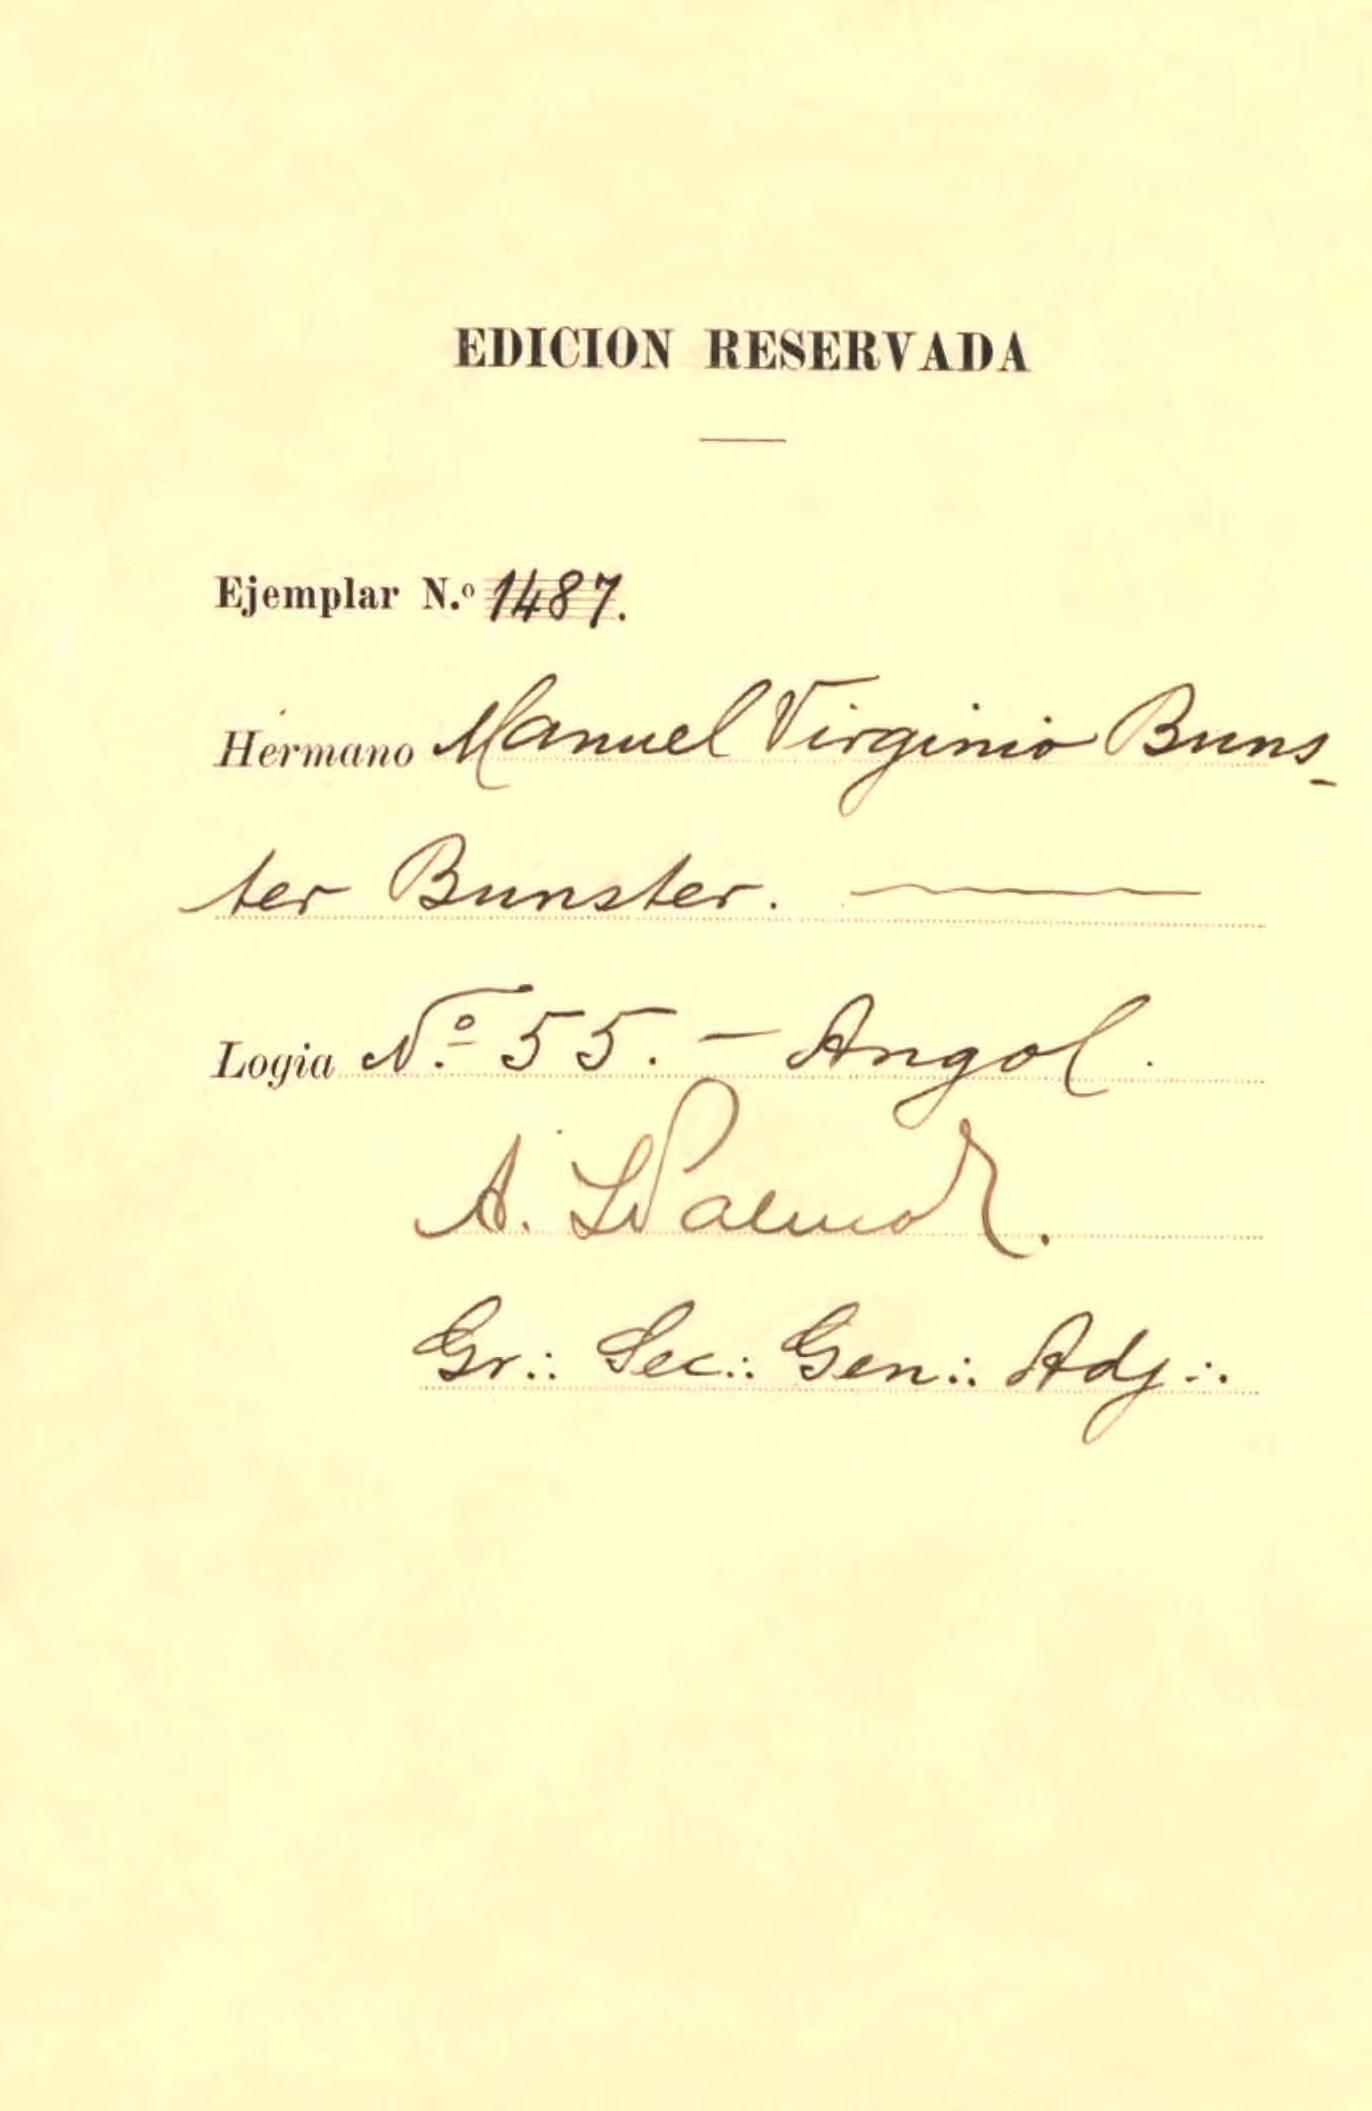 EDICION RESERVADA
Ejemplar N.º 1487.
Hermano Manuel Virginio Buns-
ter Bunster.
Logia Nº 55. - Angol.
A.
Gr∴ Sec∴ Gen∴ Adj∴